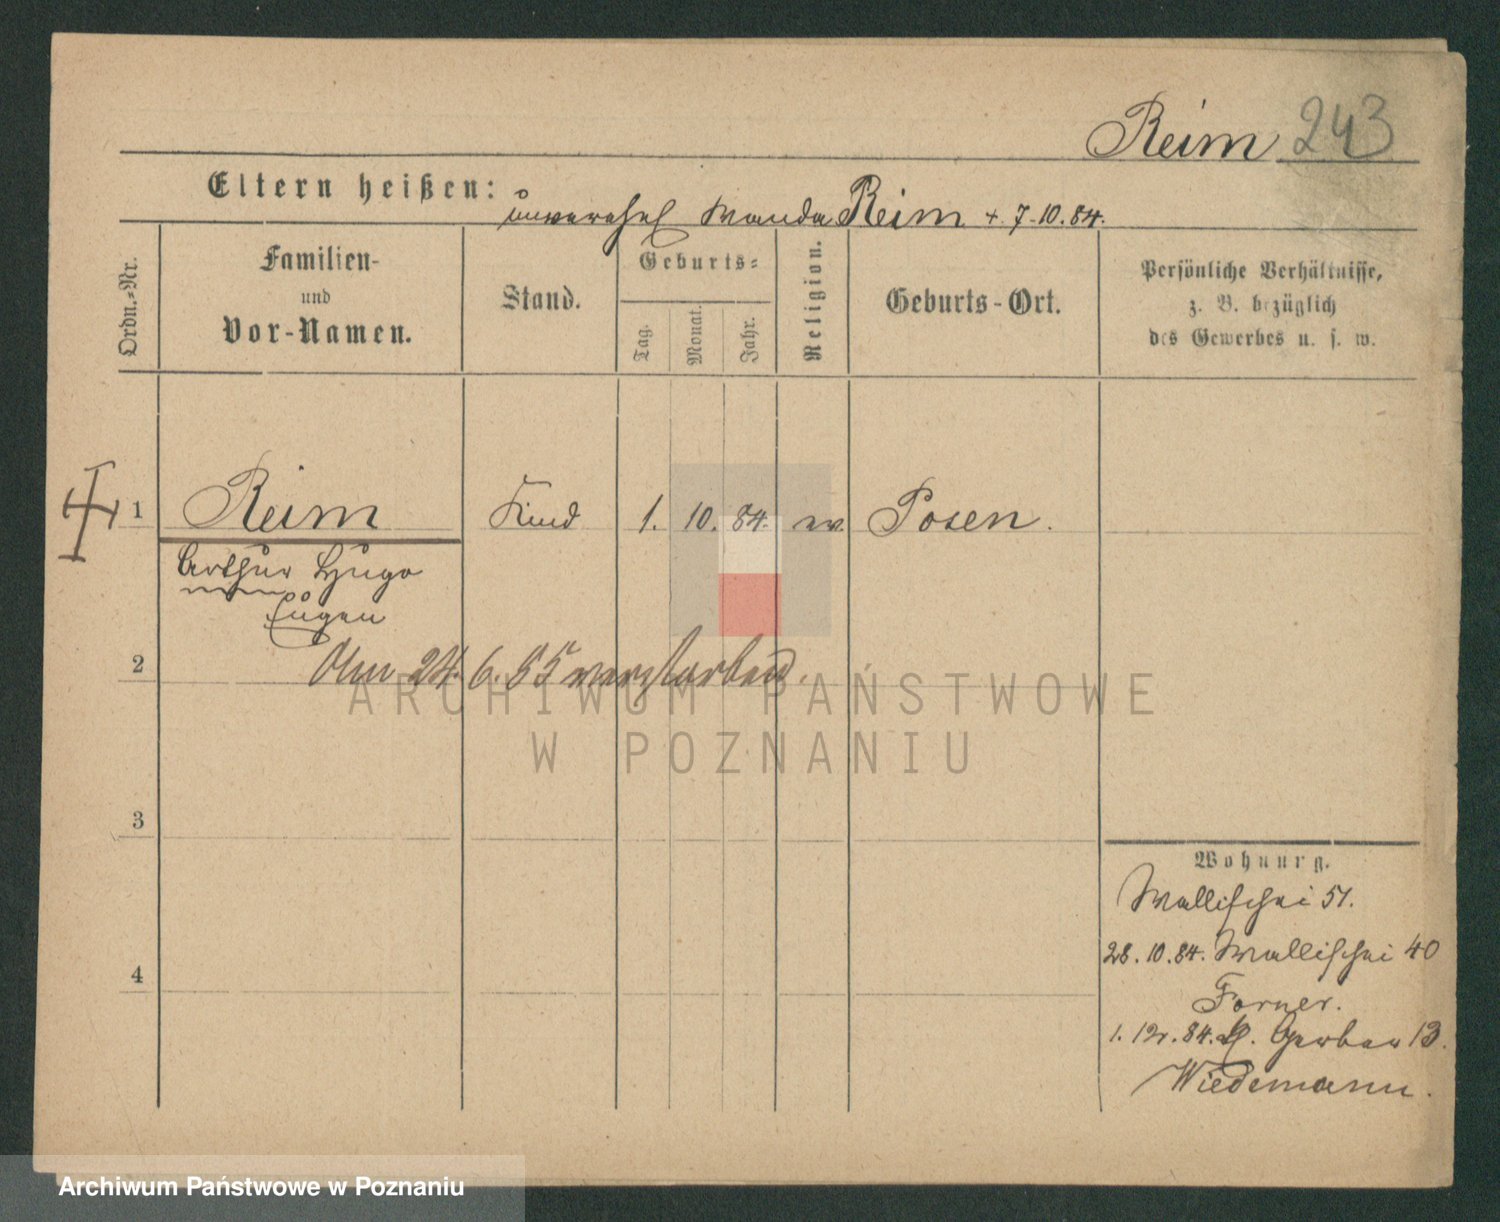 Reim 243
Eltern heißen: unverehel Wanda Reim +. 7.10.84.
Ordn.-Nr.
Familien-
und
Vor-Namen.
Stand.
Geburts-
Tag.
Monat.
Jahr.
Religion.
Geburts-Ort.
Persönliche Verhältnisse,
z. B. bezüglich
des Gewerbes u. s. w.
1 Reim Kind 1. 10. 84. ev. Posen.
Arthur Hugo
Eugen
2 Am 24. 6. 85 verstorben.
ARCHIWUM PAŃSTWOWE
W POZNANIU
3
Wohnung.
Wallischei 51.
28. 10. 84. Wallischei 40
4
Forner.
1. 12. 84. Gerber 13.
Wiedemann.
Archiwum Państwowe w Poznaniu